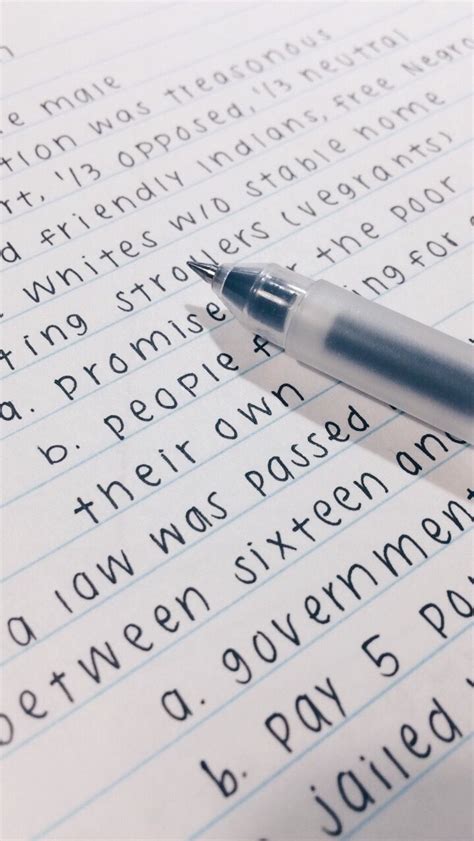 e male
tion was treasonous
rt, 1/3 opposed, 1/3 neutral
d friendly Indians, free Negro
whites w/o stable home
ting strolers (vegrants)
a. promise the poor
b. people ing for
their own
a law was passed
between sixteen and
a. government
b. pay 5 po
jailed